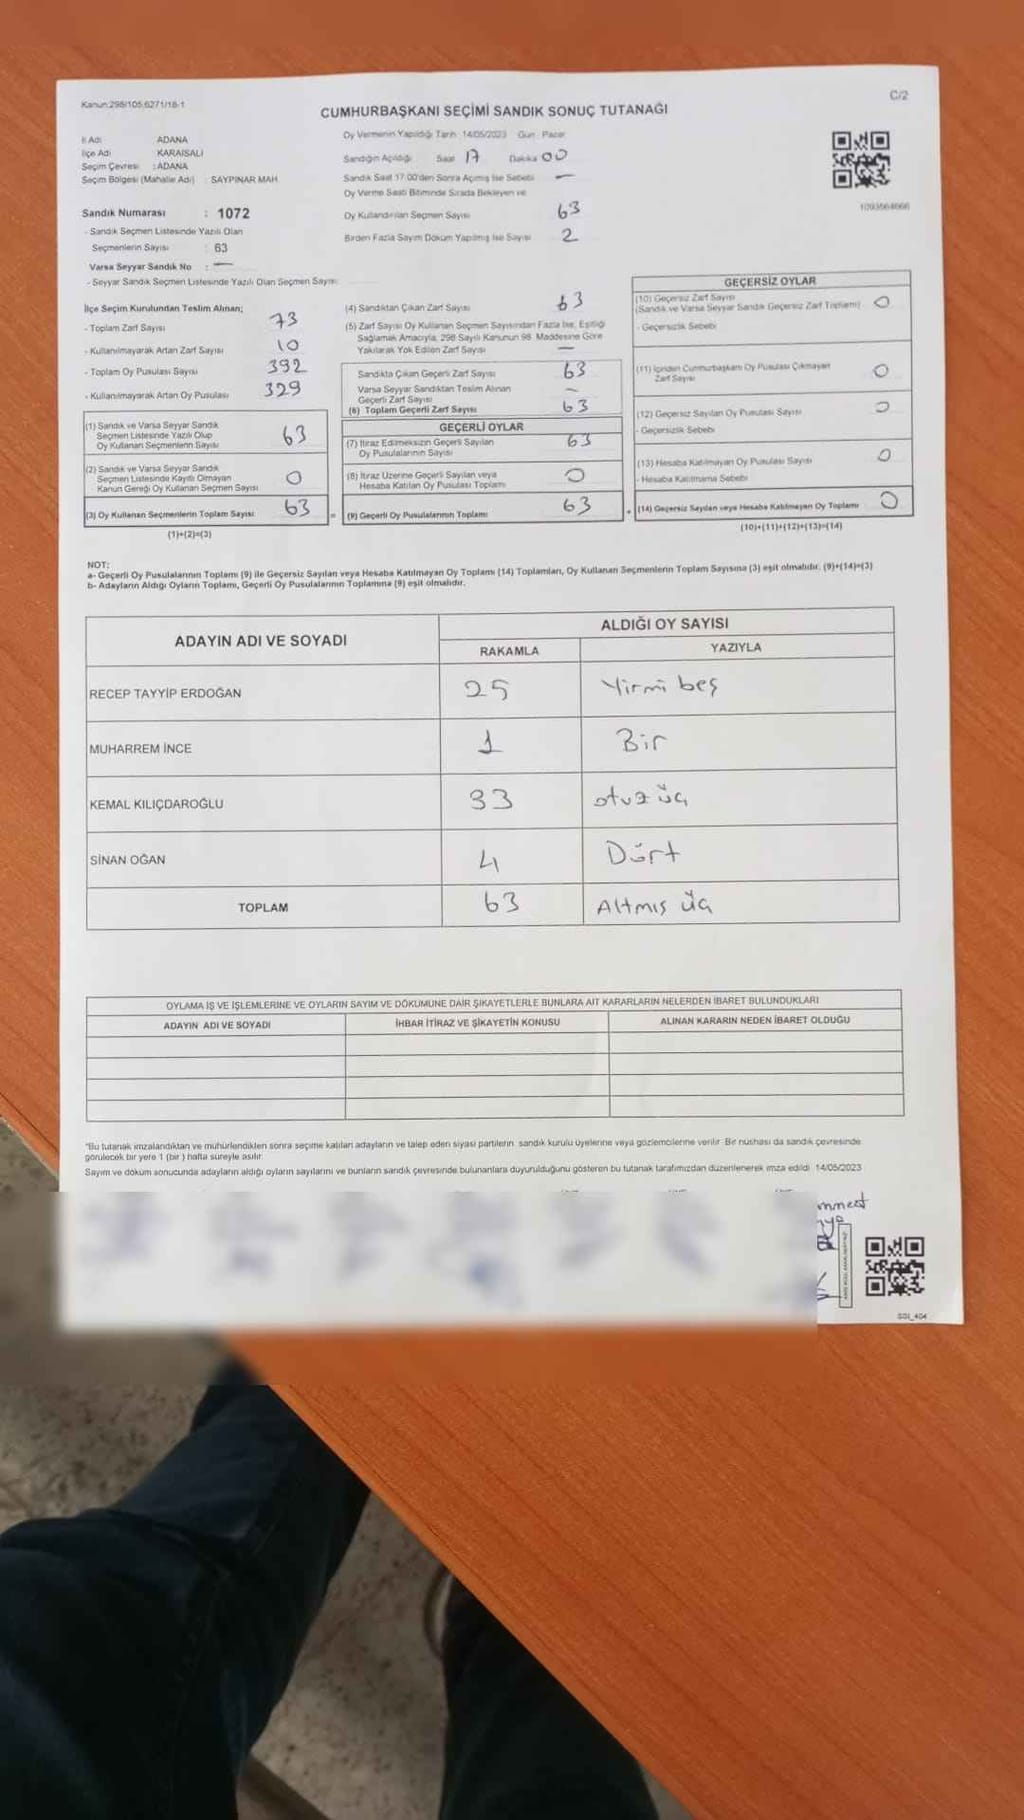 Kanun:298/105,6271/18-1
C/2
CUMHURBAŞKANI SEÇİMİ SANDIK SONUÇ TUTANAĞI
İl Adı ADANA
İlçe Adı KARAISALI
Seçim Çevresi : ADANA
Seçim Bölgesi (Mahalle Adı) : SAYPINAR MAH.
Oy Vermenin Yapıldığı Tarih 14/05/2023 Gün Pazar
Sandığın Açıldığı Saat 17 Dakika 00
Sandık Saat 17:00'den Sonra Açmış İse Sebebi —
Oy Verme Saati Bitiminde Sırada Bekleyen ve
Oy Kullandırılan Seçmen Sayısı 63
Birden Fazla Sayım Döküm Yapılmış İse Sayısı 2
1093564666
Sandık Numarası : 1072
- Sandık Seçmen Listesinde Yazılı Olan
Seçmenlerin Sayısı : 63
Varsa Seyyar Sandık No : —
- Seyyar Sandık Seçmen Listesinde Yazılı Olan Seçmen Sayısı:
İlçe Seçim Kurulundan Teslim Alınan;
- Toplam Zarf Sayısı 73
- Kullanılmayarak Artan Zarf Sayısı 10
- Toplam Oy Pusulası Sayısı 392
- Kullanılmayarak Artan Oy Pusulası 329
(1) Sandık ve Varsa Seyyar Sandık
Seçmen Listesinde Yazılı Olup
Oy Kullanan Seçmenlerin Sayısı 63
(2) Sandık ve Varsa Seyyar Sandık
Seçmen Listesinde Kayıtlı Olmayan
Kanun Gereği Oy Kullanan Seçmen Sayısı 0
(3) Oy Kullanan Seçmenlerin Toplam Sayısı 63
(1)+(2)=(3)
(4) Sandıktan Çıkan Zarf Sayısı 63
(5) Zarf Sayısı Oy Kullanan Seçmen Sayısından Fazla İse, Eşitliği
Sağlamak Amacıyla, 298 Sayılı Kanunun 98. Maddesine Göre
Yakılarak Yok Edilen Zarf Sayısı —
Sandıkta Çıkan Geçerli Zarf Sayısı 63
Varsa Seyyar Sandıktan Teslim Alınan
Geçerli Zarf Sayısı —
(6) Toplam Geçerli Zarf Sayısı 63
GEÇERLİ OYLAR
(7) İtiraz Edilmeksizin Geçerli Sayılan
Oy Pusulalarının Sayısı 63
(8) İtiraz Üzerine Geçerli Sayılan veya
Hesaba Katılan Oy Pusulası Toplamı 0
= (9) Geçerli Oy Pusulalarının Toplamı 63
GEÇERSİZ OYLAR
(10) Geçersiz Zarf Sayısı 0
(Sandık ve Varsa Seyyar Sandık Geçersiz Zarf Toplamı)
- Geçersizlik Sebebi
(11) İçinden Cumhurbaşkanı Oy Pusulası Çıkmayan
Zarf Sayısı 0
(12) Geçersiz Sayılan Oy Pusulası Sayısı 0
- Geçersizlik Sebebi
(13) Hesaba Katılmayan Oy Pusulası Sayısı 0
- Hesaba Katılmama Sebebi
+ (14) Geçersiz Sayılan veya Hesaba Katılmayan Oy Toplamı 0
(10)+(11)+(12)+(13)=(14)
NOT:
a- Geçerli Oy Pusulalarının Toplamı (9) ile Geçersiz Sayılan veya Hesaba Katılmayan Oy Toplamı (14) Toplamları, Oy Kullanan Seçmenlerin Toplam Sayısına (3) eşit olmalıdır. (9)+(14)=(3)
b- Adayların Aldığı Oyların Toplamı, Geçerli Oy Pusulalarının Toplamına (9) eşit olmalıdır.
ADAYIN ADI VE SOYADI ALDIĞI OY SAYISI
RAKAMLA YAZIYLA
RECEP TAYYİP ERDOĞAN 25 Yirmi beş
MUHARREM İNCE 1 Bir
KEMAL KILIÇDAROĞLU 33 otuz üç
SİNAN OĞAN 4 Dört
TOPLAM 63 Altmış üç
OYLAMA İŞ VE İŞLEMLERİNE VE OYLARIN SAYIM VE DÖKÜMÜNE DAİR ŞİKAYETLERLE BUNLARA AİT KARARLARIN NELERDEN İBARET BULUNDUKLARI
ADAYIN ADI VE SOYADI İHBAR İTİRAZ VE ŞİKAYETİN KONUSU ALINAN KARARIN NEDEN İBARET OLDUĞU
*Bu tutanak imzalandıktan ve mühürlendikten sonra seçime katılan adayların ve talep eden siyasi partilerin sandık kurulu üyelerine veya gözlemcilerine verilir. Bir nüshası da sandık çevresinde
görülecek bir yere 1 (bir) hafta süreyle asılır.
Sayım ve döküm sonucunda adayların aldığı oyların sayılarını ve bunların sandık çevresinde bulunanlara duyurulduğunu gösteren bu tutanak tarafımızdan düzenlenerek imza edildi. 14/05/2023